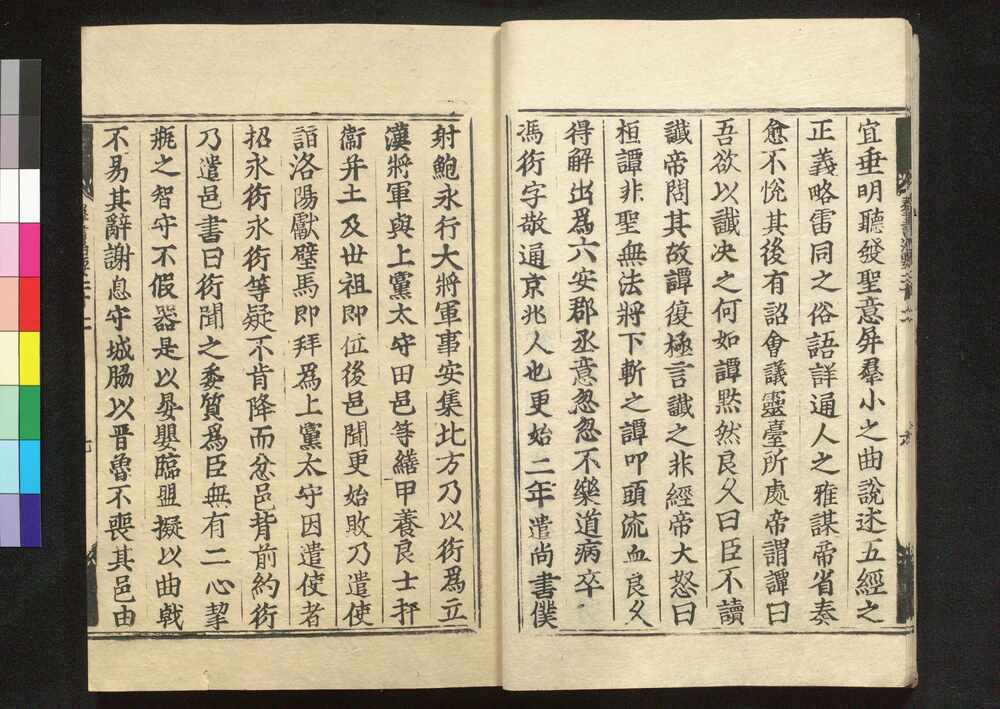 宜垂明聽發聖意屏羣小之曲說述五經之
正義略雷同之俗語詳通人之雅謀帝省奏
愈不悅其後有詔會議靈臺所處帝謂譚曰
吾欲以讖决之何如譚默然良久曰臣不讀
讖帝問其故譚復極言讖之非經帝大怒曰
桓譚非聖無法將下斬之譚叩頭流血良久
得解出爲六安郡丞意忽忽不樂道病卒
馮衍字敬通京兆人也更始二年遣尚書僕
射鮑永行大將軍事安集北方乃以衍爲立
漢將軍與上黨太守田邑等繕甲養良士扞
衞并土及世祖即位後邑聞更始敗乃遣使
詣洛陽獻璧馬即拜爲上黨太守因遣使者
招永衍永衍等疑不肯降而忿邑背前約衍
乃遺邑書曰衍聞之委質爲臣無有二心挈
瓶之智守不假器是以晏嬰臨盟擬以曲戟
不易其辭謝息守城脇以晋魯不喪其邑由